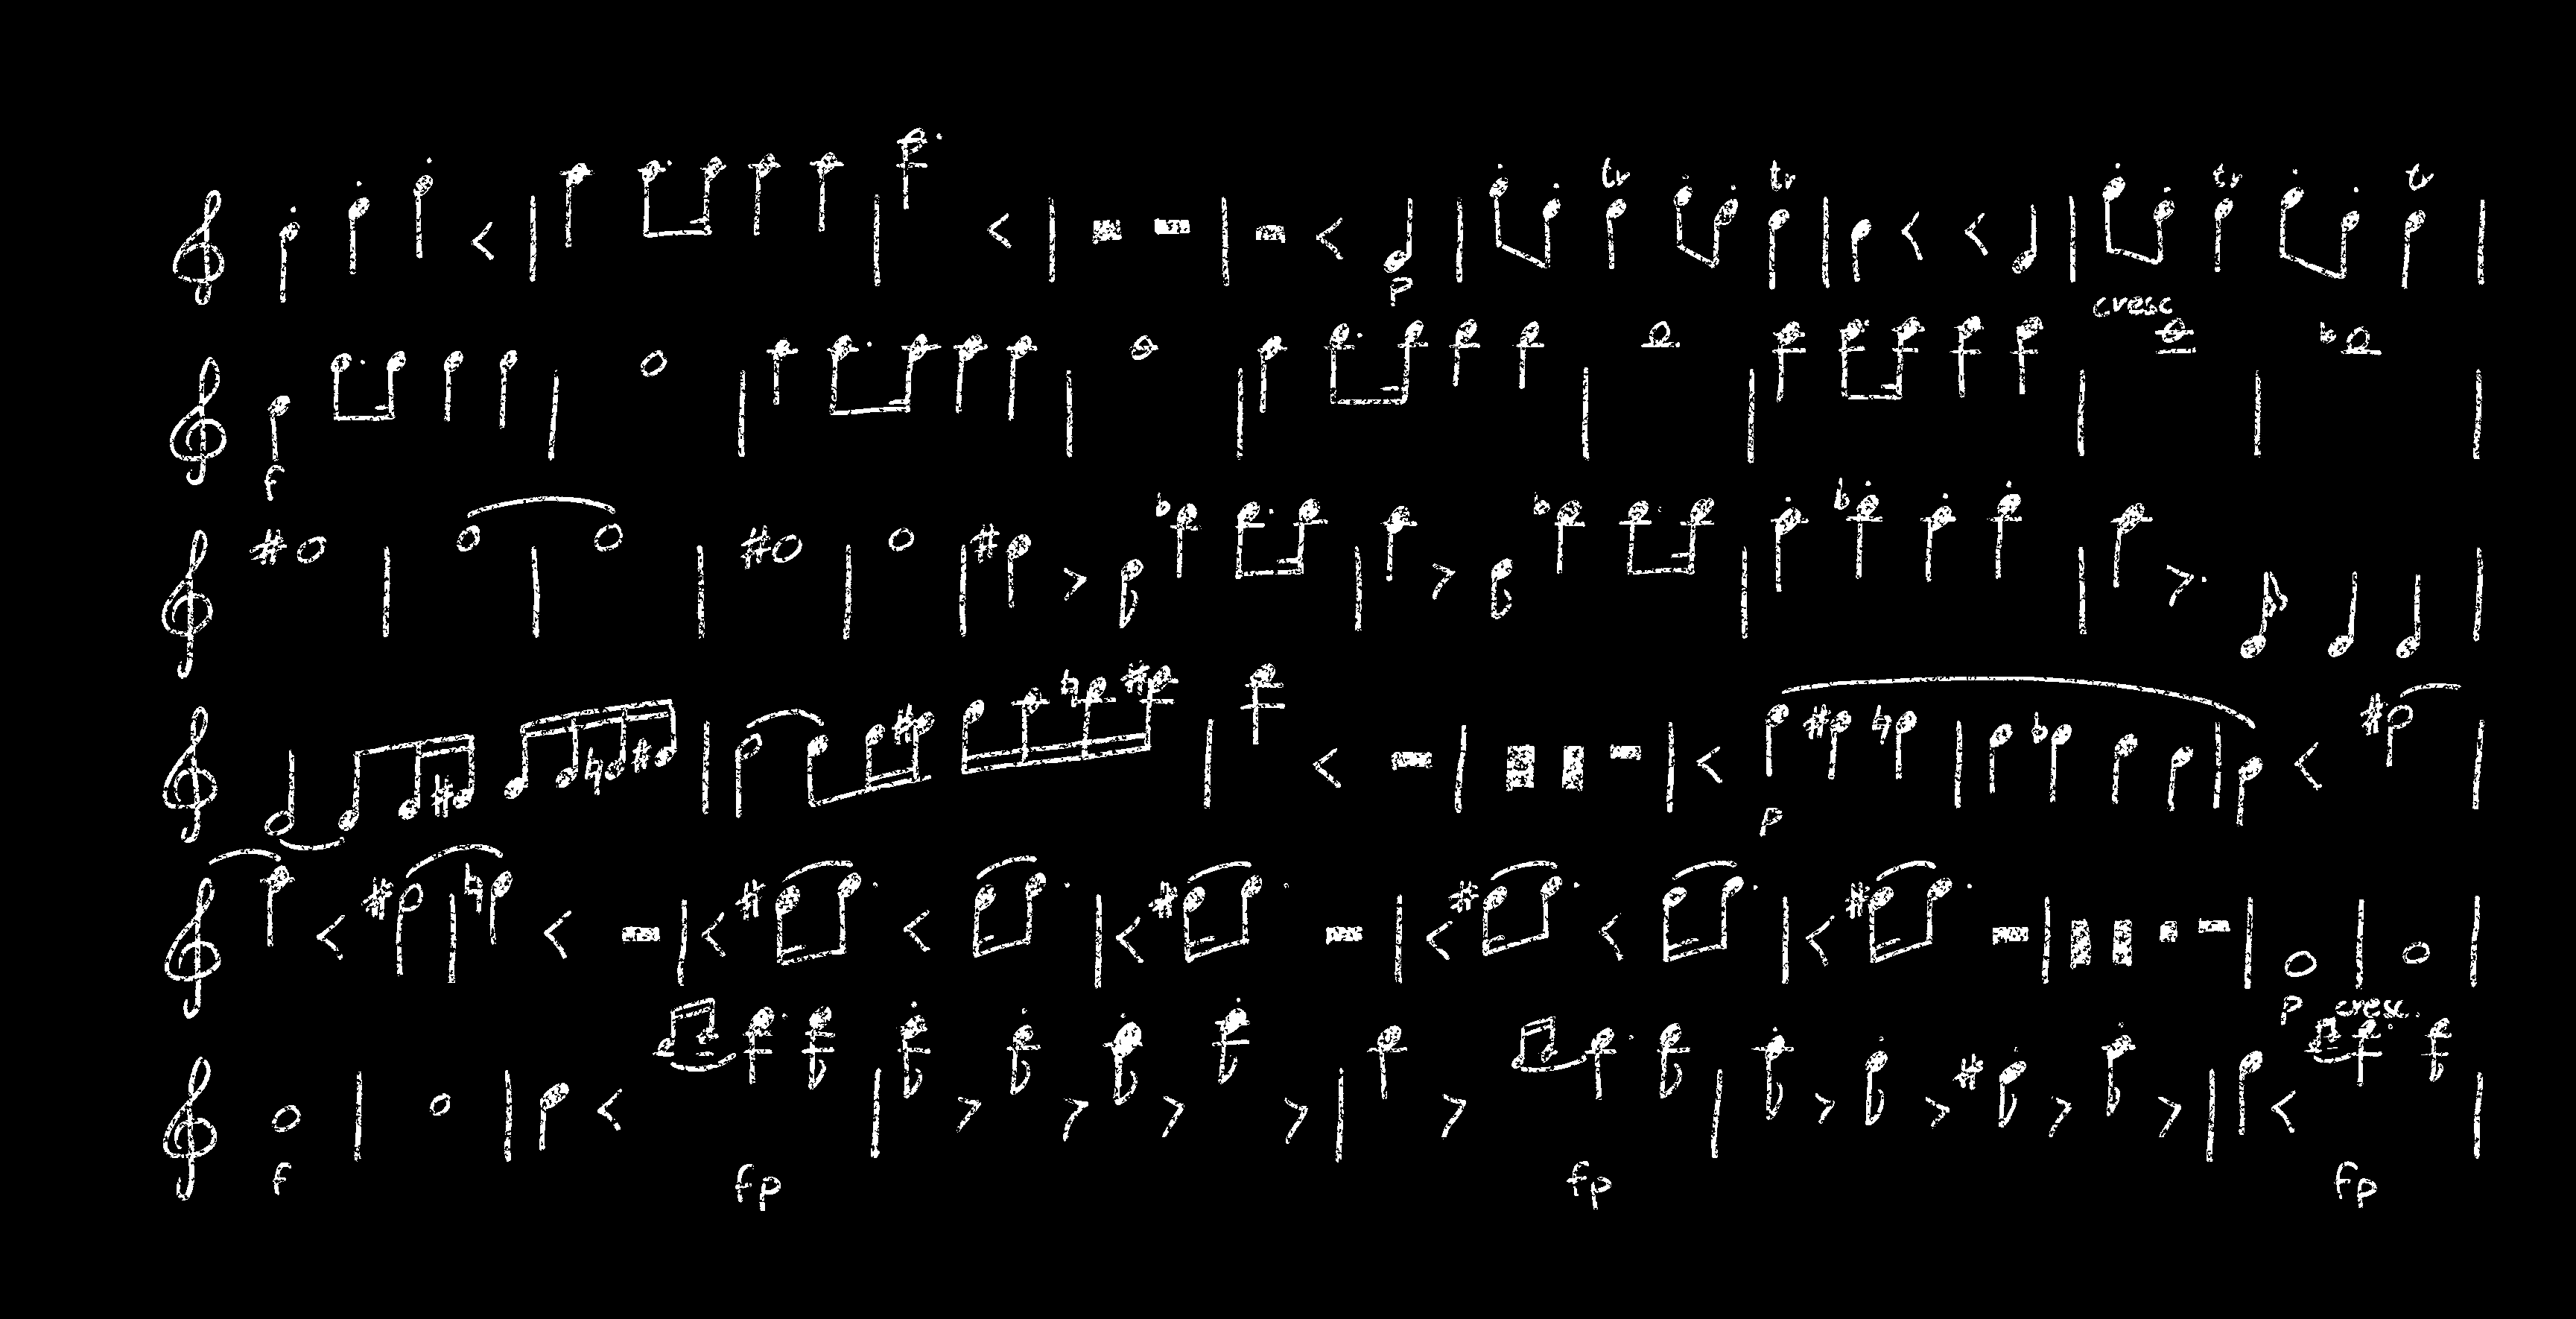 tr tr tr tr
p cresc
f
p
p cresc.
f fp fp fp